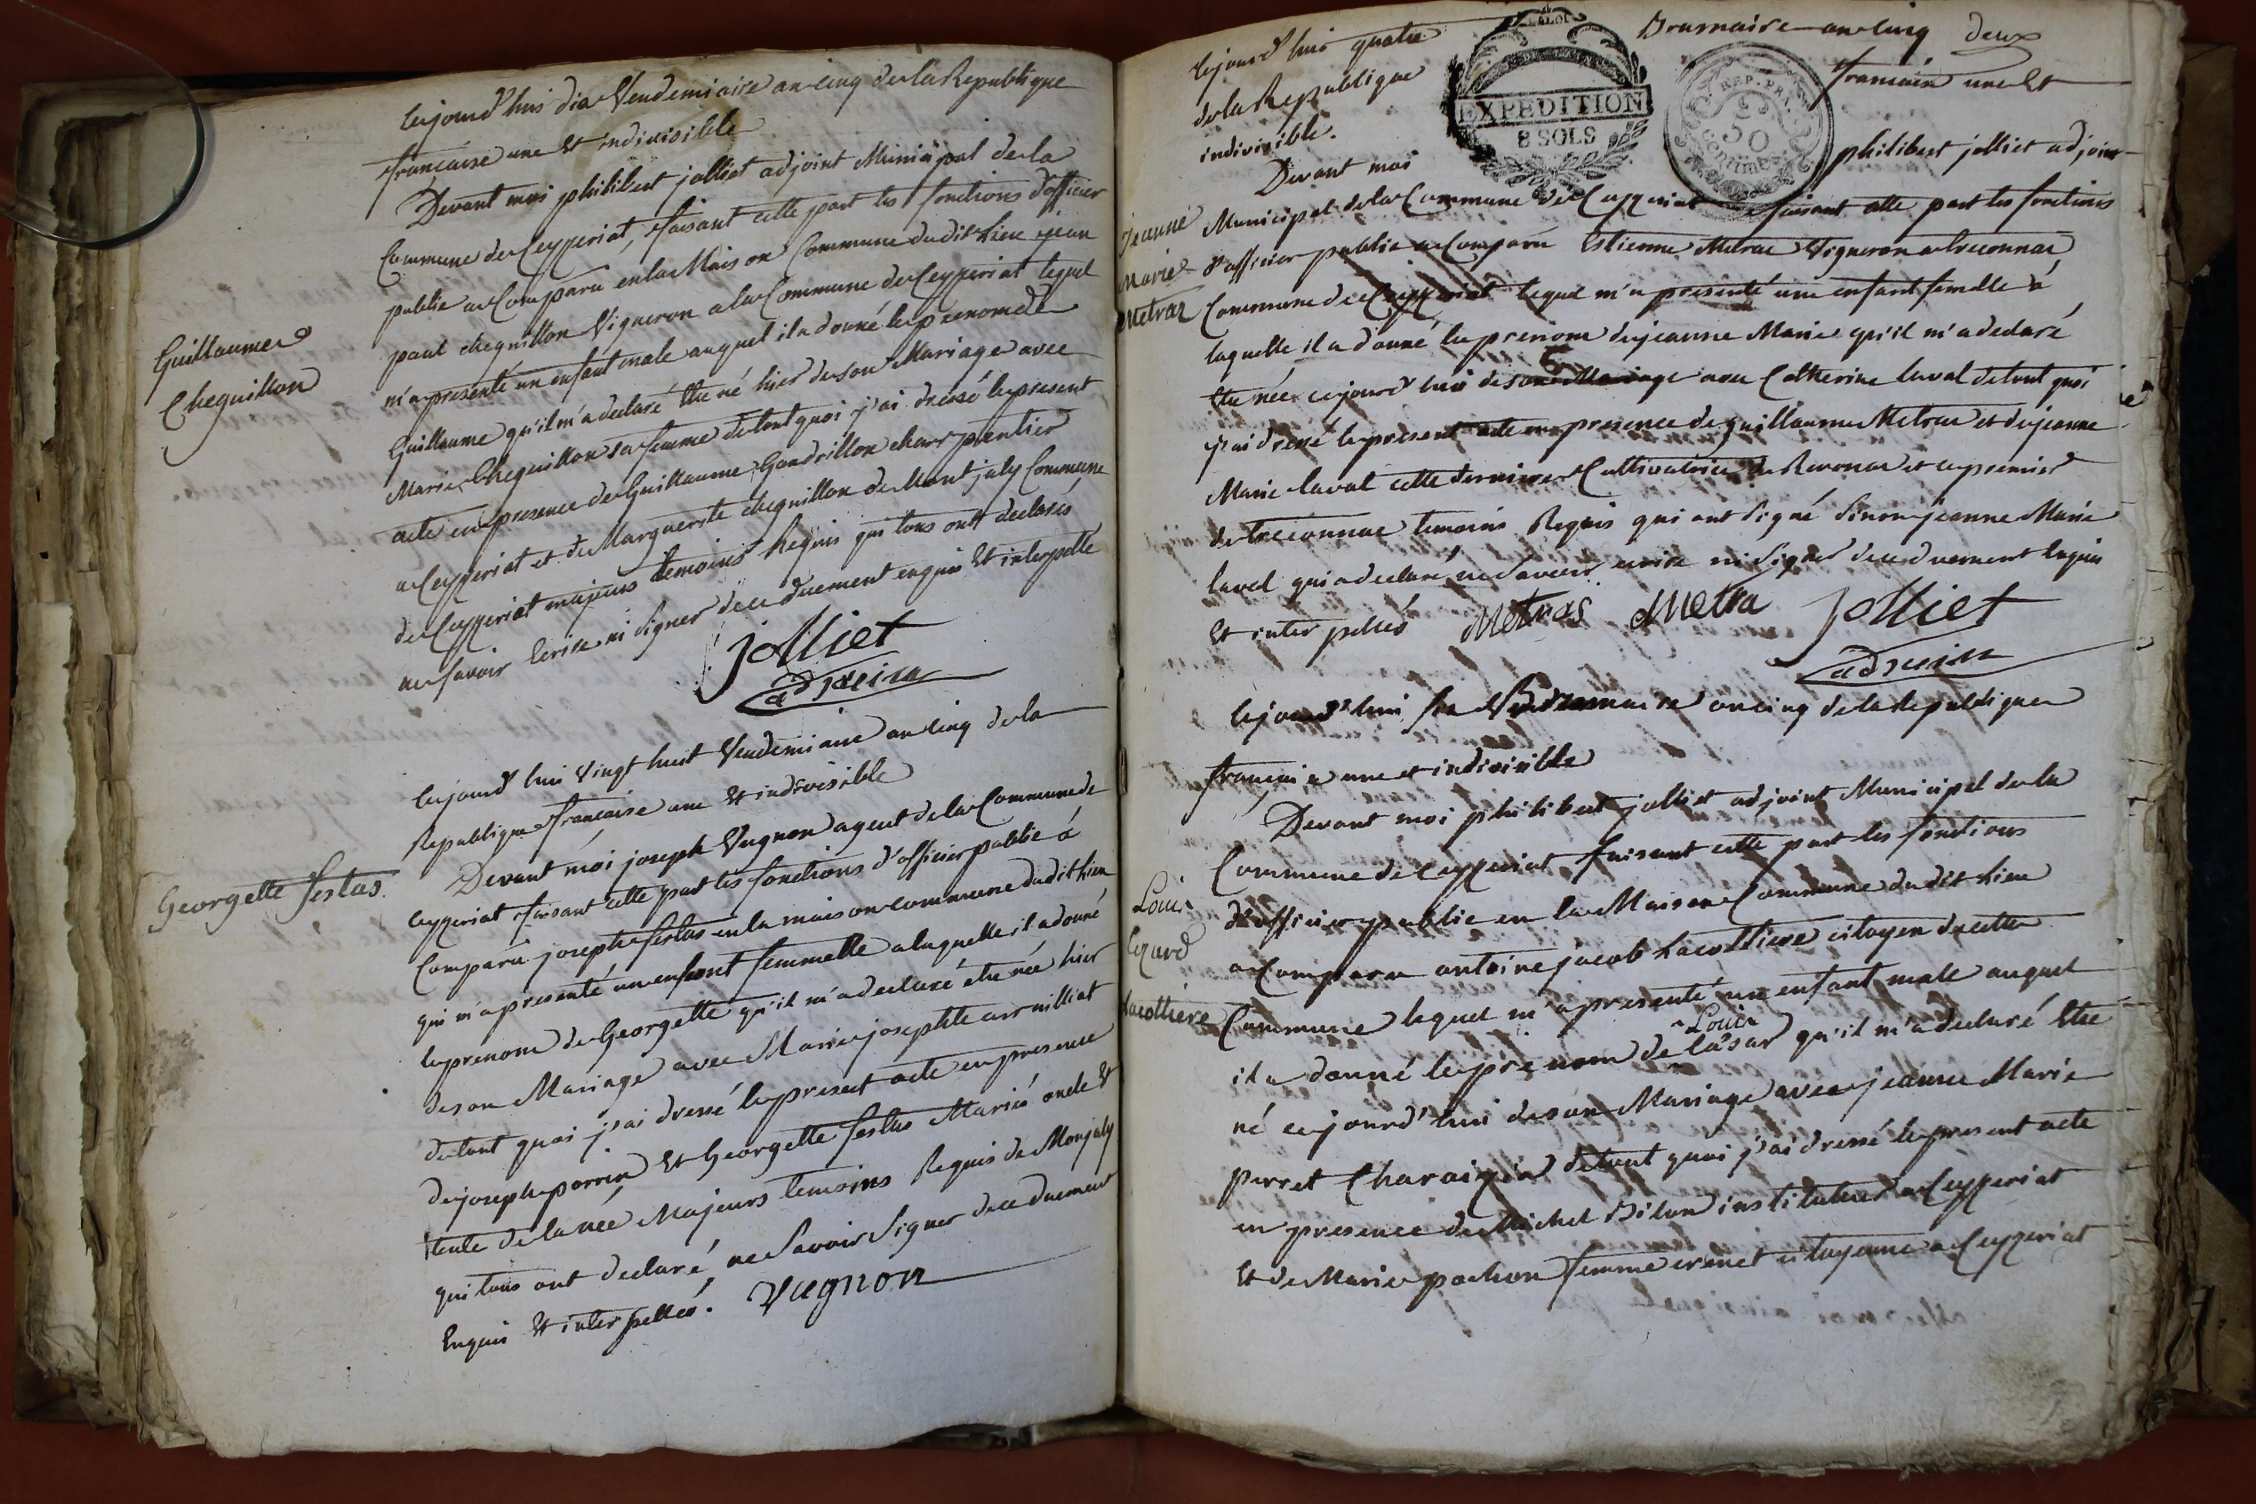 Cejourd'hui dix Vendemiaire an cinq de la Republique
francaise une Et indivisible
Devant moi philibert jolliet adjoint Municipal de la
Commune de Ceyzeriat, faisant cette part les fonctions d'officier
public a Comparu en la Maison Commune dudit Lieu jean
paul cheguillon Vigneron a la Commune de Ceyzeriat lequel
m'a presenté un enfant male auquel il a donné le prenom de
Guillaume qu'il m'a declaré Etre né hier de son Mariage avec
Marie Cheguillon sa femme de tout quoi j'ai dressé le present
acte en presence de Guillaume Gondrillon charpentier
a Ceyzeriat et de Marguerite cheguillon de Mont july Commune
de Ceyzeriat majeurs temoins Requis qui tous ont declarés
ne savoir Ecrire ni signer de ce duement enquis Et interpellé
Guillaume
Cheguillon
jolliet
adjoin
Cejourd'hui Vingt huit Vendemiaire an cinq de la
Republique francaise une Et indivisible
Devant moi joseph Vugnon agent de la Commune de
Ceyzeriat faisant cette part les fonctions d'officier public á
Comparu joseph festas en la maison commune dudit Lieu
qui m'a presenté un enfant femmelle a laquelle il a donné
le prenom de Georgette qu'il m'a declaré être née hier
de son Mariage avec Marie josephte
de tout quoi j'ai dressé le present acte en presence
de joseph perrin Et Georgette festas Mariés oncle Et
tente de la née Majeurs temoins Requis de Monjuly
qui tous ont declaré ne Savoir Signer de ce duement
Enquis Et interpellés. Vugnon
Georgette festas.
Cejourd'hui quatre Brumaire an cinq deux
de la Republique francaise une Et
indivisible.
EXPEDITION
8 SOLS
REP. FRA.
50
centimes
Devant moi philibert jolliet adjoint
Municipal de la Commune de Ceyzeriat faisant cette part les fonctions
d'officier public a Comparu Estienne Metras Vigneron a treconnas
Commune de Ceyzeriat lequel m'a presenté une enfant femelle á
laquelle il a donné le prenom de jeanne Marie qu'il m'a declaré
Etre née cejourd'hui de son Mariage avec Catherine laval de tout quoi
j'ai dressé le present acte en presence de guillaume Metras et de jeanne
Marie laval cette derniere Cultivatrice de Revonas et le premier
de treconnas temoins Requis qui ont signé sinon jeanne Marie
laval qui a declaré ne Savoir ecrire ni signer de ce duement Enquis
Et interpellés Metras Metra jolliet
adjoin
jeanne
marie
metraz
Cejourd'hui six Brumaire an cinq de la Republique
francaise une et indivisible
Devant moi philibert jolliet adjoint Municipal de la
Commune de Ceyzeriat faisant cette part les fonctions
d'officier public en la Maison Commune dudit Lieu
a Comparu antoine jacob Lacottiere citoyen de cette
Commune lequel m'a presenté un enfant male auquel
il a donné le prenom de Louis Lasar qu'il m'a declaré Etre
né cejourd'hui de son Mariage avec jeanne Marie
perret de tout quoi j'ai dressé le present acte
en presence de Michel Bilon instituteur a Ceyzeriat
Et de Marie pochon femme citoyenne a Ceyzeriat
Louis
Lazard
Lacottiere